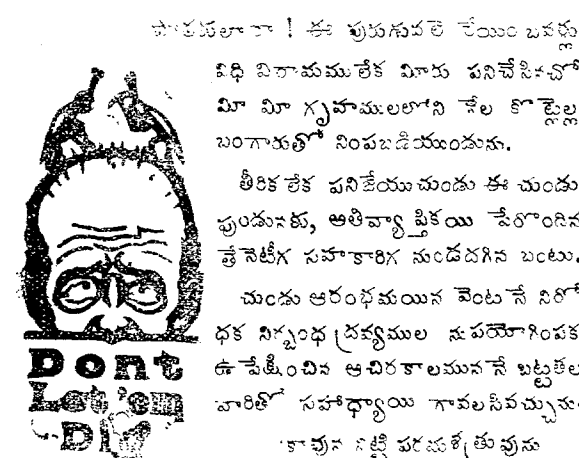 పాఠకులారా ! ఈ పురుగువలె రేయింబవర్లు
విధి విరామములేక మీరు పనిచేసినచో
మీ మీ గృహములలోని నేల కొట్లెల్ల
బంగారుతో నింపబడియుండును.
తీరిక లేక పనిజేయుచుండు ఈ చుండు
పుండునకు, అతివ్యాప్తికయి పేరొందిన
తేనెటీగ సహకారిగ నుండదగిన బంటు.
చుండు ఆరంభమయిన వెంటనే నిరో
ధక నిర్బంధ ద్రవ్యముల నుపయోగింపక
ఉపేక్షించిన అచిరకాలముననే బట్టతల
వారితో సహాధ్యాయి గావలసివచ్చును.
కావున నిట్టి పరమశత్రువును
Dont
Let 'em